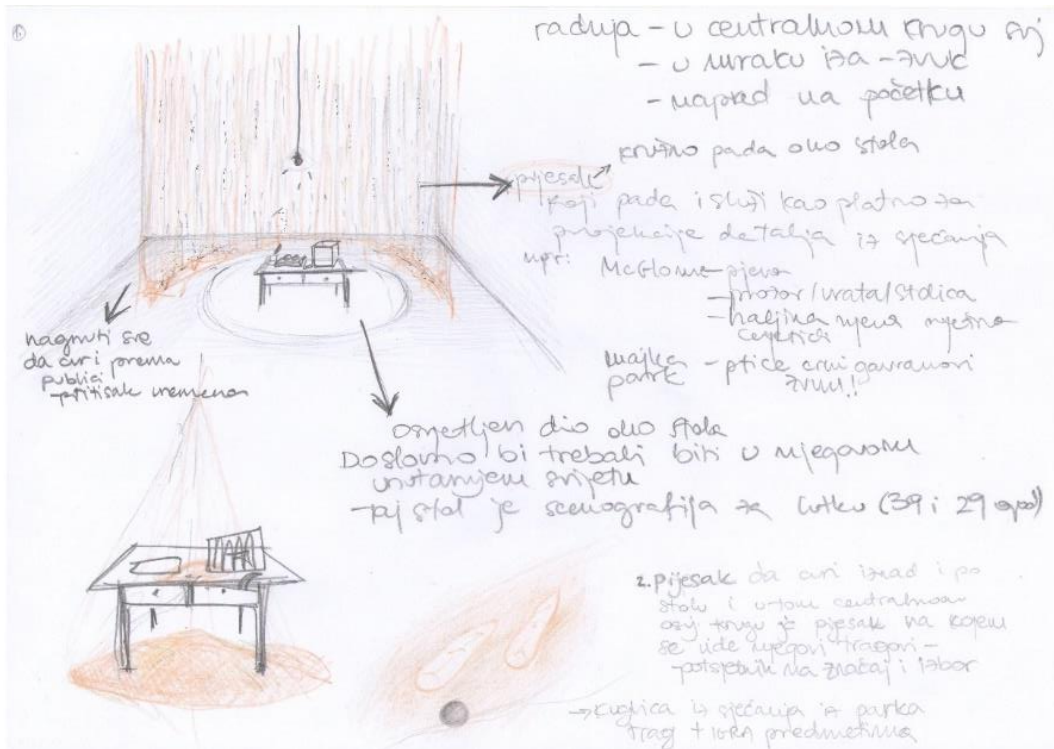 radnja - u centralnom krugu svj
- u mraku iza - zvuk
- naprid na početku
kružno pada oko stola
pijesak
koji pada i služi kao platno za
projekcije detalja iz sjećanja
npr:
McGlome - pjeva
- prozor/vrata/stolica
- haljina njena nježna
cvjetići
majka
park - ptice crni gavranovi
zvuk!!
nagnuti sve
da curi prema
publici
- pritisak vremena
Osvjetljen dio oko stola
Doslovno bi trebali biti u njegovom
unutarnjem svijetu
- pij stol je scenografija za lutku (39 i 29 god)
2. Pijesak da curi iznad i po
stolu i u tom centralnom
osvj krugu je pijesak na kojem
se vide njegovi tragovi -
potsjetnik na značaj i izbor
→ Kuglica iz sjećanja iz parka
trag + IGRA predmetima